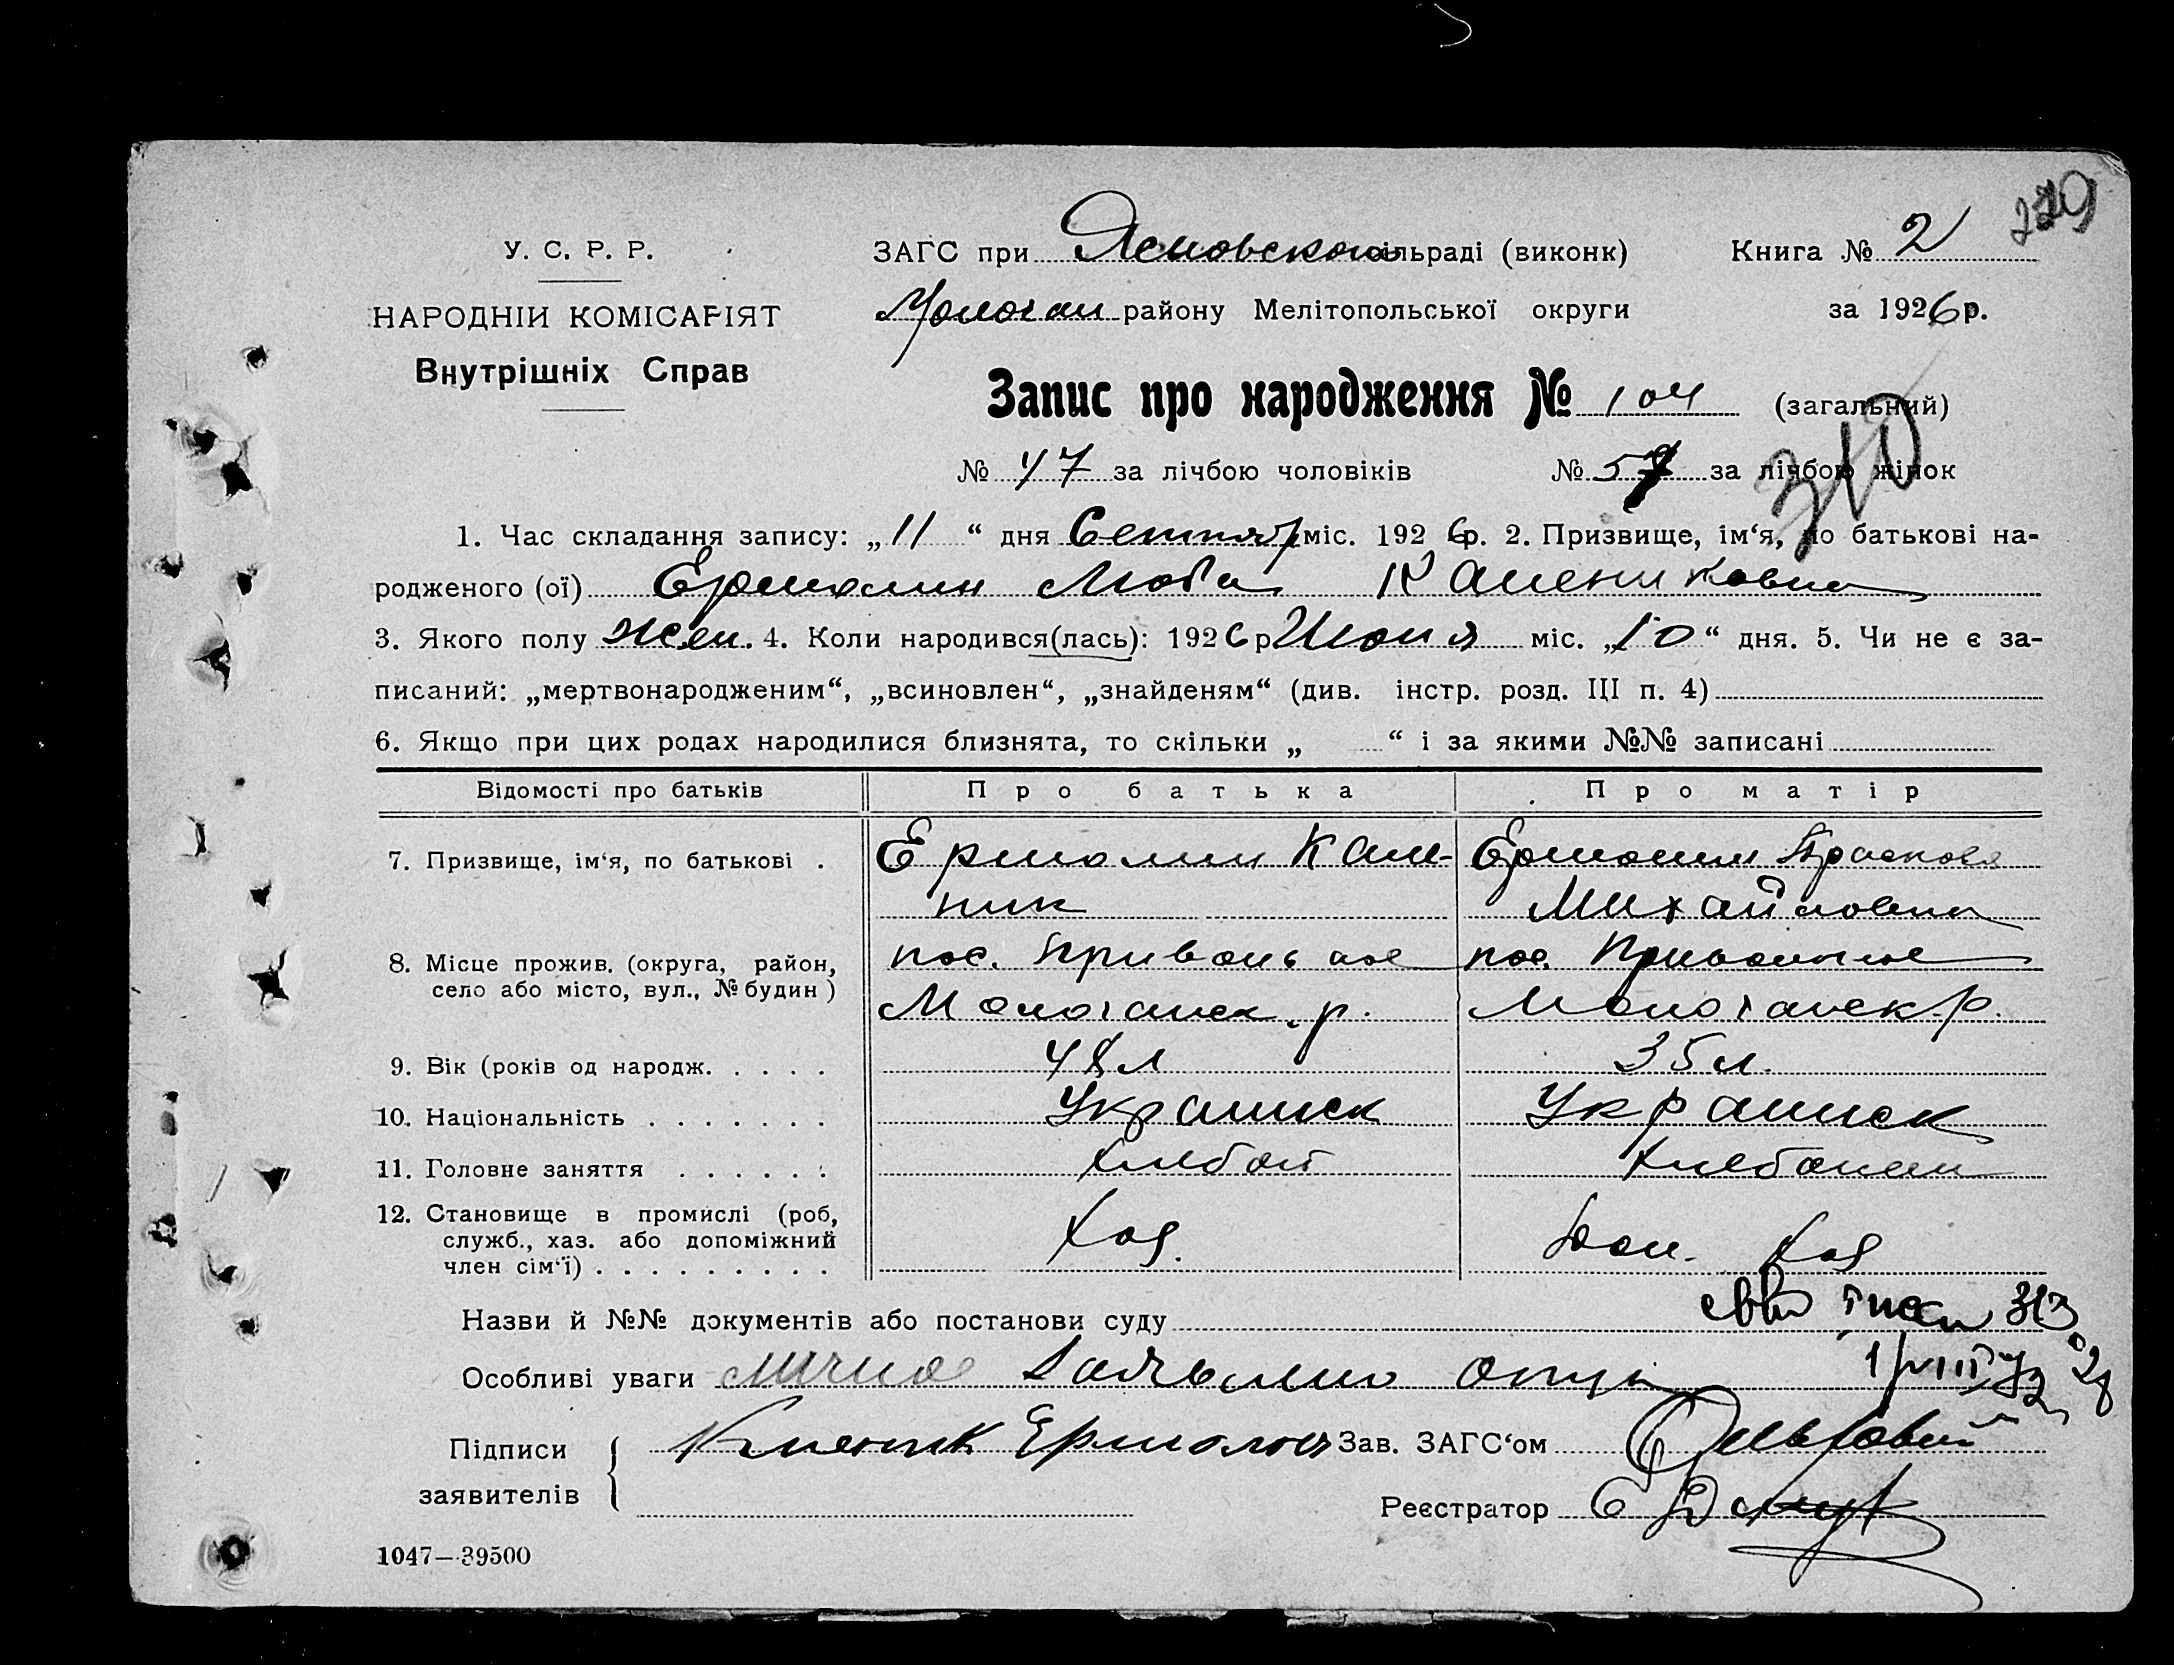 239
У. С. Р. Р.
ЗАГС при Ясновском сільраді (виконк)
Книга № 2
НАРОДНІЙ КОМІСАРІЯТ
Молочан району Мелітопольської округи
за 1926 р.
Внутрішніх Справ
Запис про народження № 104 (загальний)
№ 47 за лічбою чоловіків № 57 за лічбою жінок
310
1. Час складання запису: „11“ дня Сентяр міс. 1926 р. 2. Призвище, ім‘я, по батькові на-
родженого (ої) Ермолин Люба
3. Якого полу жен. 4. Коли народився(лась): 1926 р Июня міс. „10“ дня. 5. Чи не є за-
писаний: „мертвонародженим“, „всиновлен“, „знайденям“ (див. інстр. розд. ЦІ п. 4)
6. Якщо при цих родах народилися близнята, то скільки „ “ і за якими №№ записані
Відомості про батьків Про батька Про матір
7. Призвище, ім‘я, по батькові . Ермолин Ермолин Прасковя
Михайловна
8. Місце прожив. (округа, район, село або місто, вул., № будин) пос. Привольное пос. Привольное
Молочанск. р. Молочанск. р.
9. Вік (років од народж. . . . . 48 л 35 л.
10. Національність . . . . . . . Украинск Украинск
11. Головне заняття . . . . . . Хлебоп Хлебопаш
12. Становище в промислі (роб, служб., хаз. або допоміжний член сім‘ї) . . . . . . . . . Хоз. Пом. Хоз
Назви й №№ документів або постанови суду
Особливі уваги лично
Підписи заявителів Ермолин Зав. ЗАГС‘ом
Реєстратор
1047—39500